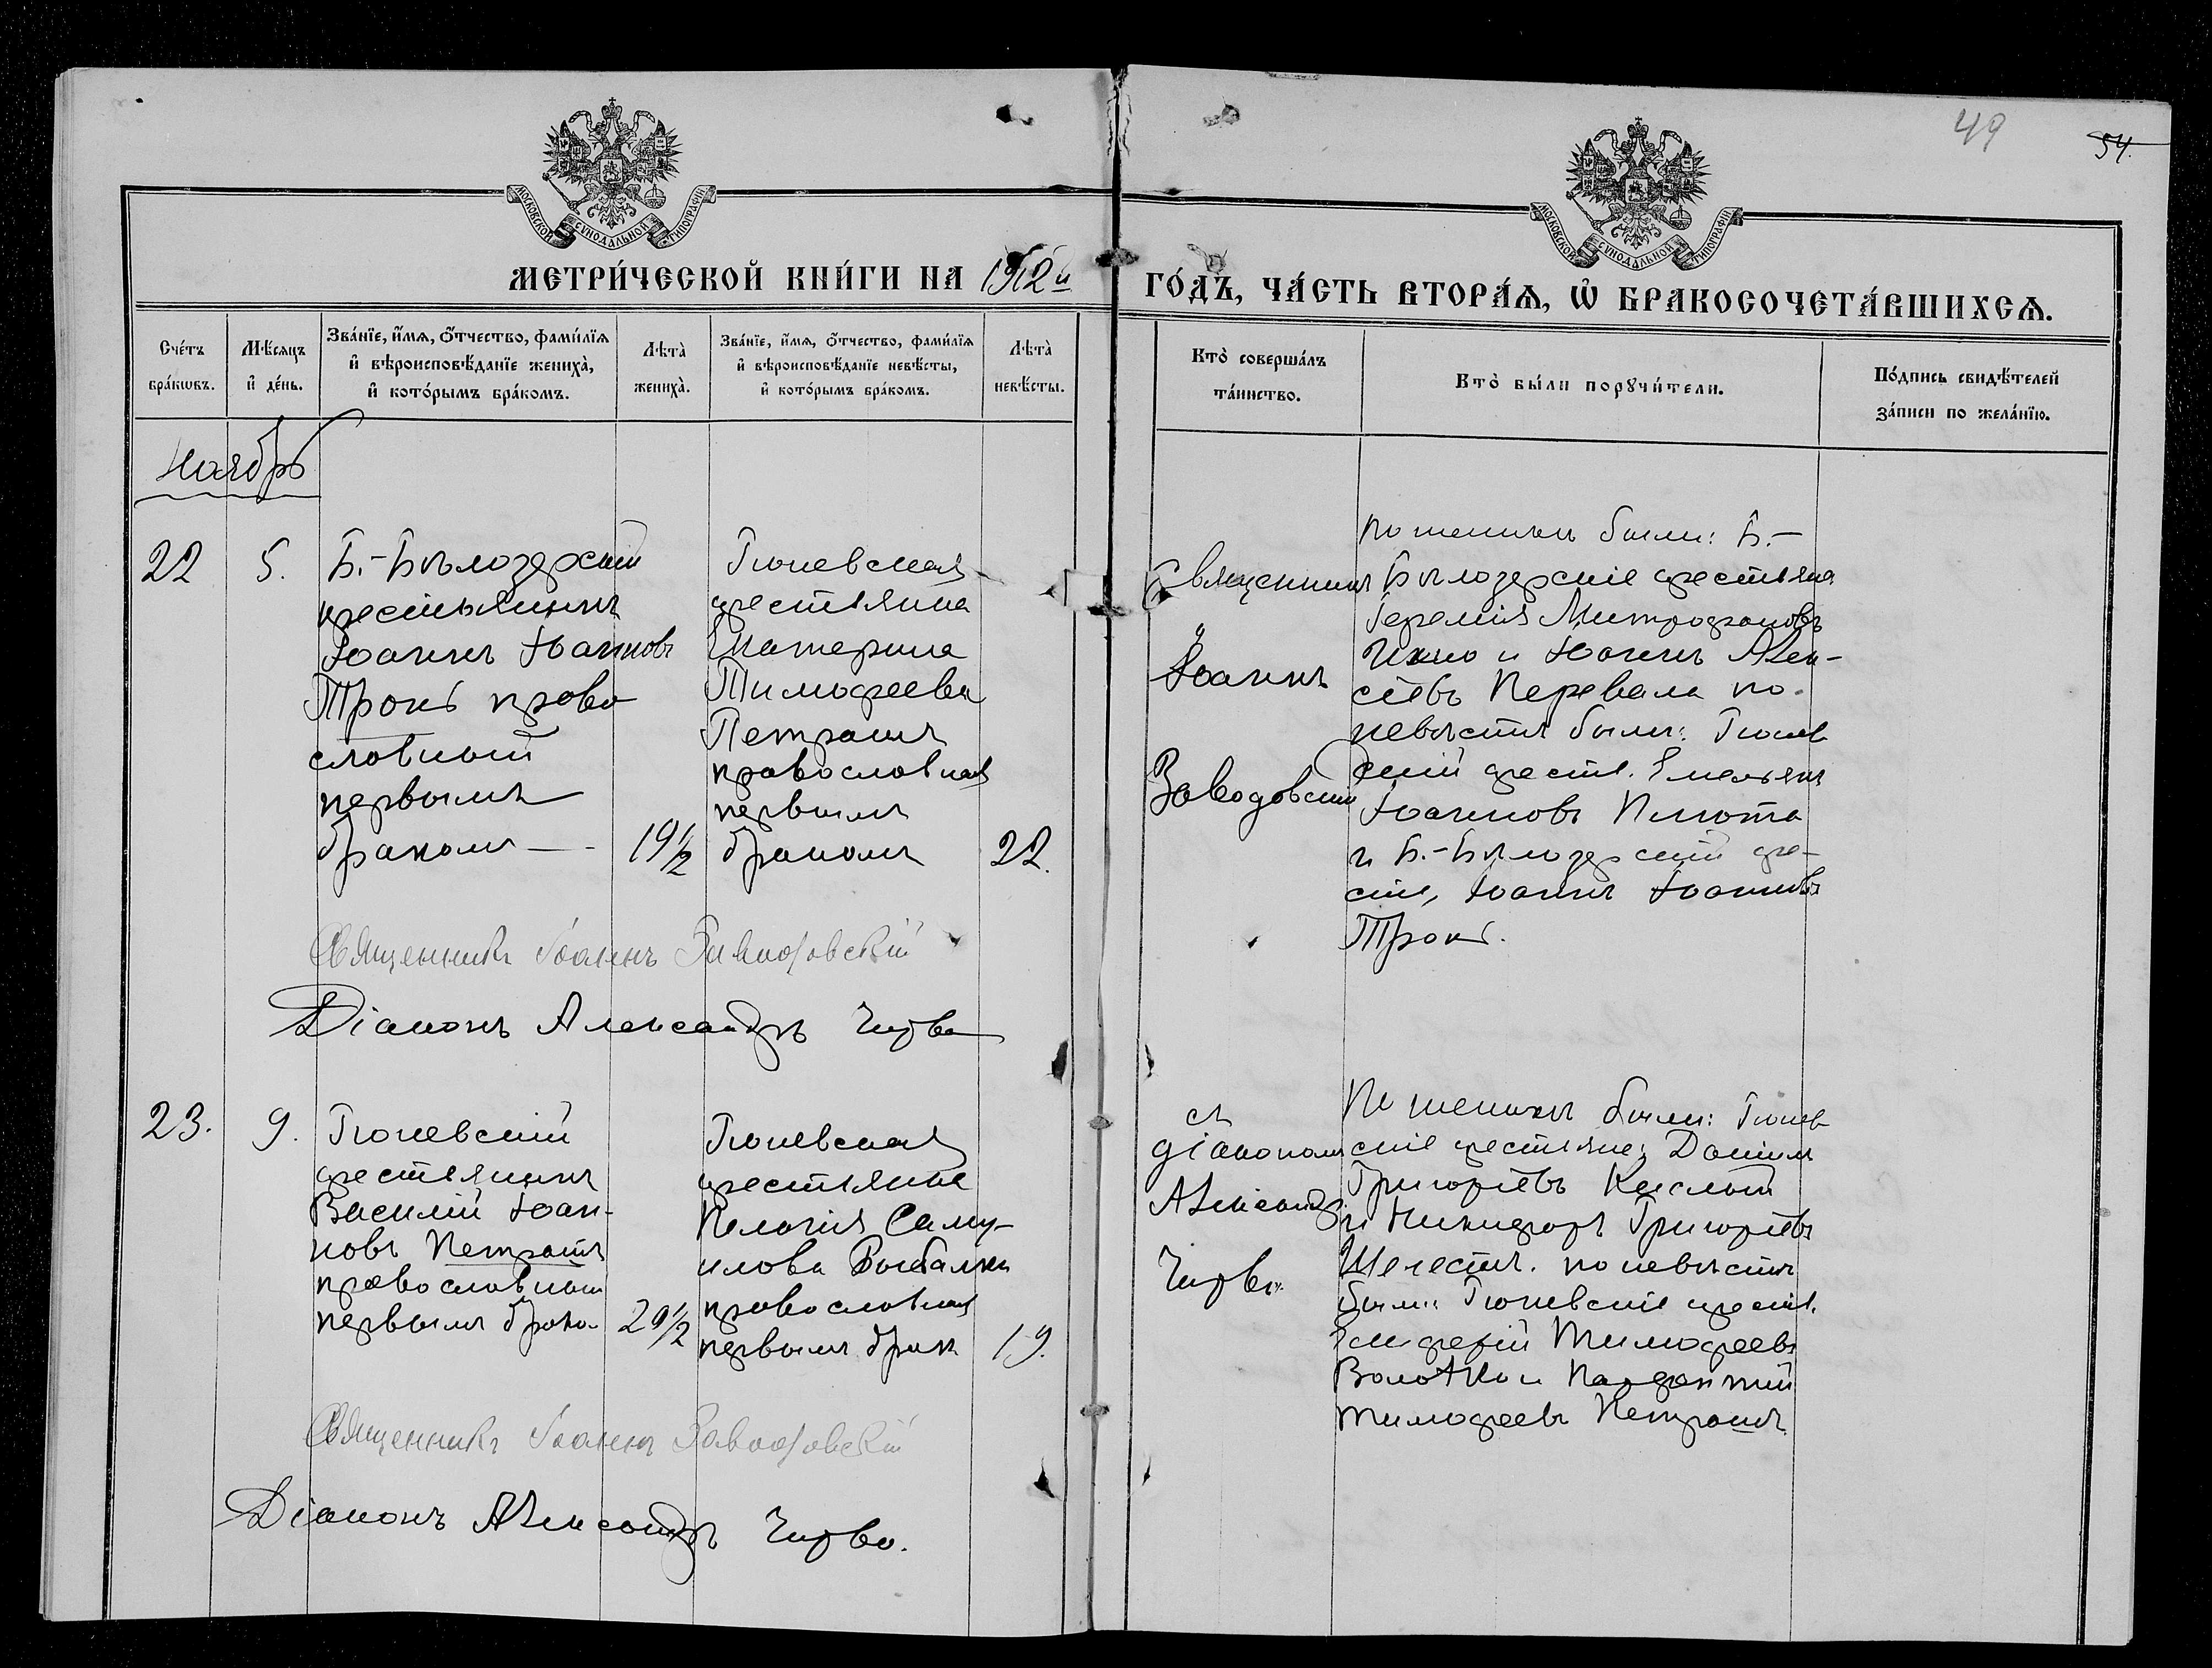 49
54.
МОСКОВСКОЙ СѴНОДАЛЬНОЙ ТИПОГРАФІИ
МОСКОВСКОЙ СѴНОДАЛЬНОЙ ТИПОГРАФІИ
МЕТРИ́ЧЕСКОЙ КНИ́ГИ НА 1912й ГО́ДЪ, ЧА́СТЬ ВТОРА́Ѧ, Ѡ҆ БРАКОСОЧЕТА́ВШИХСѦ.
Сче́тъ
бра́кѡвъ.
Мѣ́сяцъ
и҆ де́нь.
Зва́нїе, и҆́мѧ, ѻ҆́тчество, фами́лїѧ
и҆ вѣроисповѣ́данїе жениха̀,
и҆ кото́рымъ бра́комъ.
Лѣта̀
жениха̀.
Зва́нїе, и҆́мѧ, ѻ҆́тчество, фами́лїѧ
и҆ вѣроисповѣ́данїе невѣ́сты,
и҆ кото́рымъ бра́комъ.
Лѣта̀
невѣ́сты.
Кто̀ соверша́лъ
та́инство.
Кто̀ бы́ли порꙋчи́тели.
По́дпись свидѣ́телей
за́писи по жела́нїю.
Ноябрь
22
5.
Б.-Бѣлозерскій
крестьянинъ
Іоаннъ Іоанновъ
Трокъ право
славный
первымъ
бракомъ
19½
Гюневская
крестьянка
Екатерина
Тимофеева
Петрашъ
православная
первымъ
бракомъ
22.
Священникъ
Іоаннъ
Заводовскій
по женихѣ были: Б.-
Бѣлозерскіе крестьяне
Іеремія Митрофановъ
и Іоаннъ Алек-
сѣевъ Перевала по
невѣстѣ были: Гюнев
скій крест. Емельянъ
Іоанновъ Плюта
и Б.-Бѣлозерскій кре-
ст, Іоаннъ Іоанновъ
Трокъ.
Священникъ Іоаннъ Заводовскій
Діаконъ Александръ Чирва
23.
9.
Гюневскій
крестьянинъ
Василій Іоан-
новъ Петрашъ
православный
первымъ брако.
29½
Гюневская
крестьянка
Пелагія Саму-
илова Рыбалка
православная
первымъ брак
19.
съ
діакономъ
Александр.
Чирва.
По женихѣ были: Гюнев
скіе крестьяне: Даніилъ
Григорьевъ Кислый
и Никифоръ Григорьевъ
Шелестъ. по невѣстѣ
были: Гюневскіе крест.
Тимофеевъ
и
Тимофеевъ Петрашъ
Священникъ Іоаннъ Заводовскій
Діаконъ Александръ Чирва.